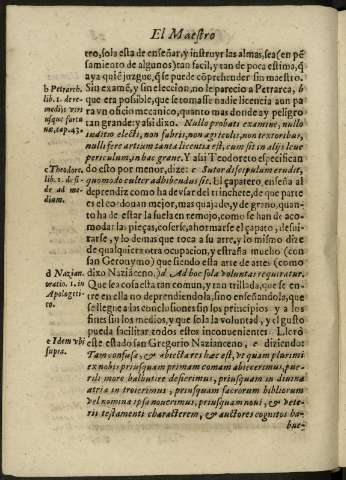 El Maestro
tro, sola esta de enseñar, y instruyr las almas, sea (en pē
samiento de algunos) tan facil, y tan de poca estima, q̃
aya quiē juzgue, q̃ se puede cōprehender sin maestro.
b Petrarch. lib. 1. de re- medijs vtri usque fortu næ, cap. 43.
Sin examē, y sin eleccion, no le parecio a Petrarca, b
que era possible, que se tomasse nadie licencia aun pa
ra vn oficio mecanico, quanto mas donde ay peligro
tan grande: y assi dixo. Nullo probati examine, nullo
iudicio electi, non fabris, non agricolis, non textoribus,
nulli fere artium tanta licentia est, cum sit in alijs leue
periculum, in hac graue. Y assi Teodoreto especifican
c Theodore. lib. 2. de fi- de ad me- dium.
do esto por menor, dize: c Sutor discipulum erudit,
quomodo culter adhibendus sit. El çapatero, enseña al
deprendiz como ha de vsar del trinchete, de que parte
es el cordouan mejor, mas quajado, y de grano, quan-
to ha de estar la suela en remojo, como se han de aco-
modar las pieças, coserse, ahormarse el çapato, desui-
rarse, y lo demas que toca a su arte, y lo mismo dize
de qualquiera otra ocupacion, y estraña mucho (con
san Geronymo) que siendo esta arte de artes (como
d Nazian. oratio. 1. in Apologeti- co.
dixo Naziāceno.) d Ad hoc sola voluntas requiratur.
Que sea cosa esta tan comun, y tan trillada, que se en-
tre en ella no deprendiendola, sino enseñandola, que
se llegue a las conclusiones sin los principios y a los
fines sin los medios, y que sola la voluntad, y el gusto
pueda facilitar todos estos inconuenientes. Lloró
e Idem vbi supra.
este estado san Gregorio Nazianceno, e diziendo:
Tam confusa, & abiecta res hæc est, vt quam plurimi
ex nobis priusquam primam comam abiecerimus, pue-
rili more balbutire desierimus, priusquam in diuina
atria introierimus, priusquam sacrorum bibliorum
vel nomina ipsa nouerimus, priusquam noui, & vete-
ris testamenti characterem, & auctores cognitos ha-
bue-